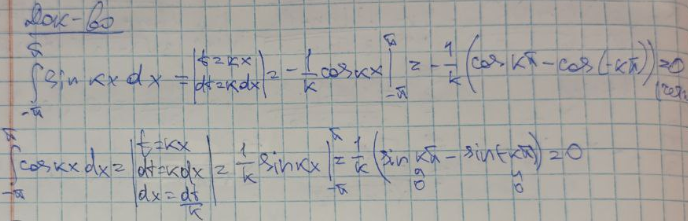 Док-во
∫_{-π}^{π} sin kx dx = |t=kx dt=kdx| = -1/k cos kx |_{-π}^{π} = -1/k (cos kπ - cos(-kπ)) = 0
∫_{-π}^{π} cos kx dx = |t=kx dt=kdx dx=dt/k| = 1/k sin kx |_{-π}^{π} = 1/k (sin kπ - sin(-kπ)) = 0
0 0